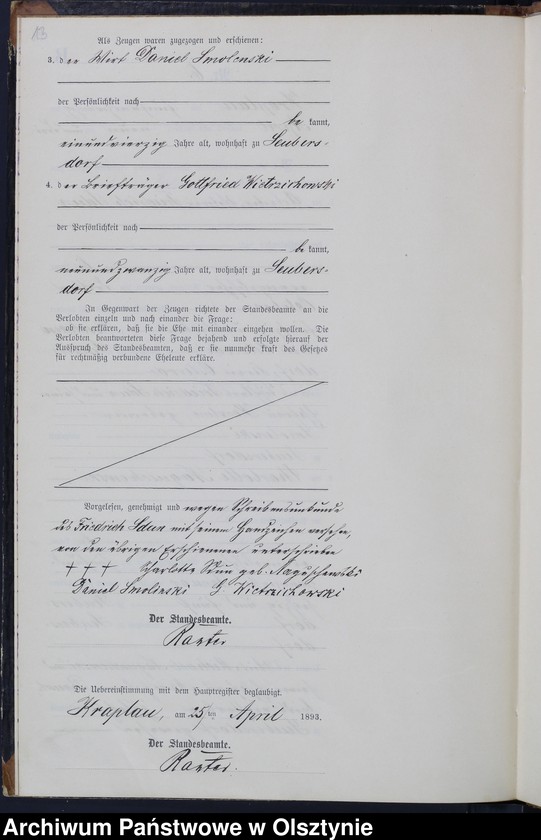 13
Als Zeugen waren zugezogen und erschienen:
3. der Wirt Daniel Smolenski
der Persönlichkeit nach
be kannt,
einundvierzig Jahre alt, wohnhaft zu Seubers-
dorf
4. der Briefträger Gottfried Wietrzichowski
der Persönlichkeit nach
be kannt,
neunundzwanzig Jahre alt, wohnhaft zu Seubers-
dorf
In Gegenwart der Zeugen richtete der Standesbeamte an die
Verlobten einzeln und nach einander die Frage:
ob sie erklären, daß sie die Ehe mit einander eingehen wollen. Die
Verlobten beantworteten diese Frage bejahend und erfolgte hierauf der
Ausspruch des Standesbeamten, daß er sie nunmehr kraft des Gesetzes
für rechtmäßig verbundene Eheleute erkläre.
Vorgelesen, genehmigt und wegen Schreibensunkunde
des Friedrich Sdun mit seinem Handzeichen versehen,
von den übrigen Erschienenen unterschrieben
+ + + Charlotte Sdun geb. Naguschewski
Daniel Smolinski G Wietrzichowski
Der Standesbeamte.
Raxter
Die Uebereinstimmung mit dem Hauptregister beglaubigt.
Kraplau, am 25 ten April 1893.
Der Standesbeamte.
Raxter.
Archiwum Państwowe w Olsztynie